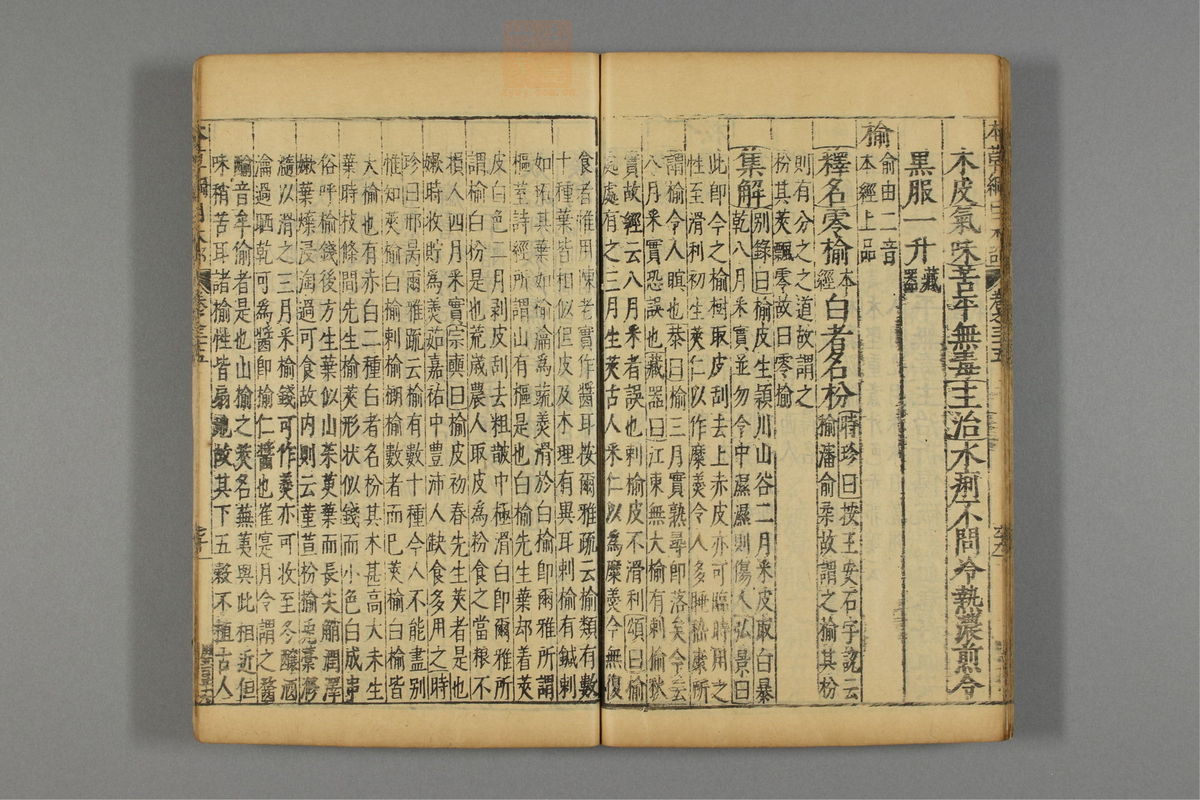 木皮氣味苦平無毒主治水痢不問冷熱濃煎令
黒服一升藏器
榆俞由二音
本經上品
釋名零榆本經白者名枌時珍曰按王安石字說云榆瀋俞柔故謂之榆其枌
則有分之之道故謂之
枌其莢飄零故曰零榆
集解別錄曰榆皮生潁川山谷二月釆皮取白暴
乾八月釆實並勿令中濕濕則傷人弘景曰
此即今之榆樹取皮刮去上赤皮亦可臨時用之
性至滑利初生莢仁以作糜羹令人多睡嵇康所
謂榆令人瞑也恭曰榆三月實熟尋即落矣今云
八月釆實恐誤也藏器曰江東無大榆有刺榆秋
實故經云八月釆者誤也刺榆皮不滑利頌曰榆
處處有之三月生莢古人釆仁以爲糜羹今無復
食者惟用陳老實作醬耳按爾雅疏云榆類有數
十種葉皆相似但皮及木理有異耳刺榆有鍼刺
如柘其葉如榆瀹爲蔬羹滑於白榆即爾雅所謂
樞荎詩經所謂山有樞是也白榆先生葉却着莢
皮白色二月剥去粗皷中極滑白即爾雅所
謂榆白枌是也荒歲農人取皮爲粉食之當粮不
損人四月釆實宗奭曰榆皮初春先生莢者是也
嫩時收貯爲羹茹嘉祐中豊沛人缺食多用之時
珍曰邢昺爾雅疏云榆有數十種今人不能盡别
惟知莢榆白榆刺榆榔榆數者而巳莢榆白榆皆
大榆也有赤白二種白者名枌其木甚高大未生
葉時枝條間先生榆莢形狀似錢而小色白成串
俗呼榆錢後方生葉似山茱萸葉而長尖䩄潤澤
嫩葉煠浸淘過可食故内則云堇荁枌榆兎薧滫
瀡以滑之三月釆榆錢可作羹亦可收至冬釀酒
瀹過晒乾可爲醬即榆仁醬也崔寔月令謂之䤅
䤅音牟偷者是也山榆之莢名蕪荑與此相近但
味稍苦耳諸榆性皆扇地故其下五穀不植古人